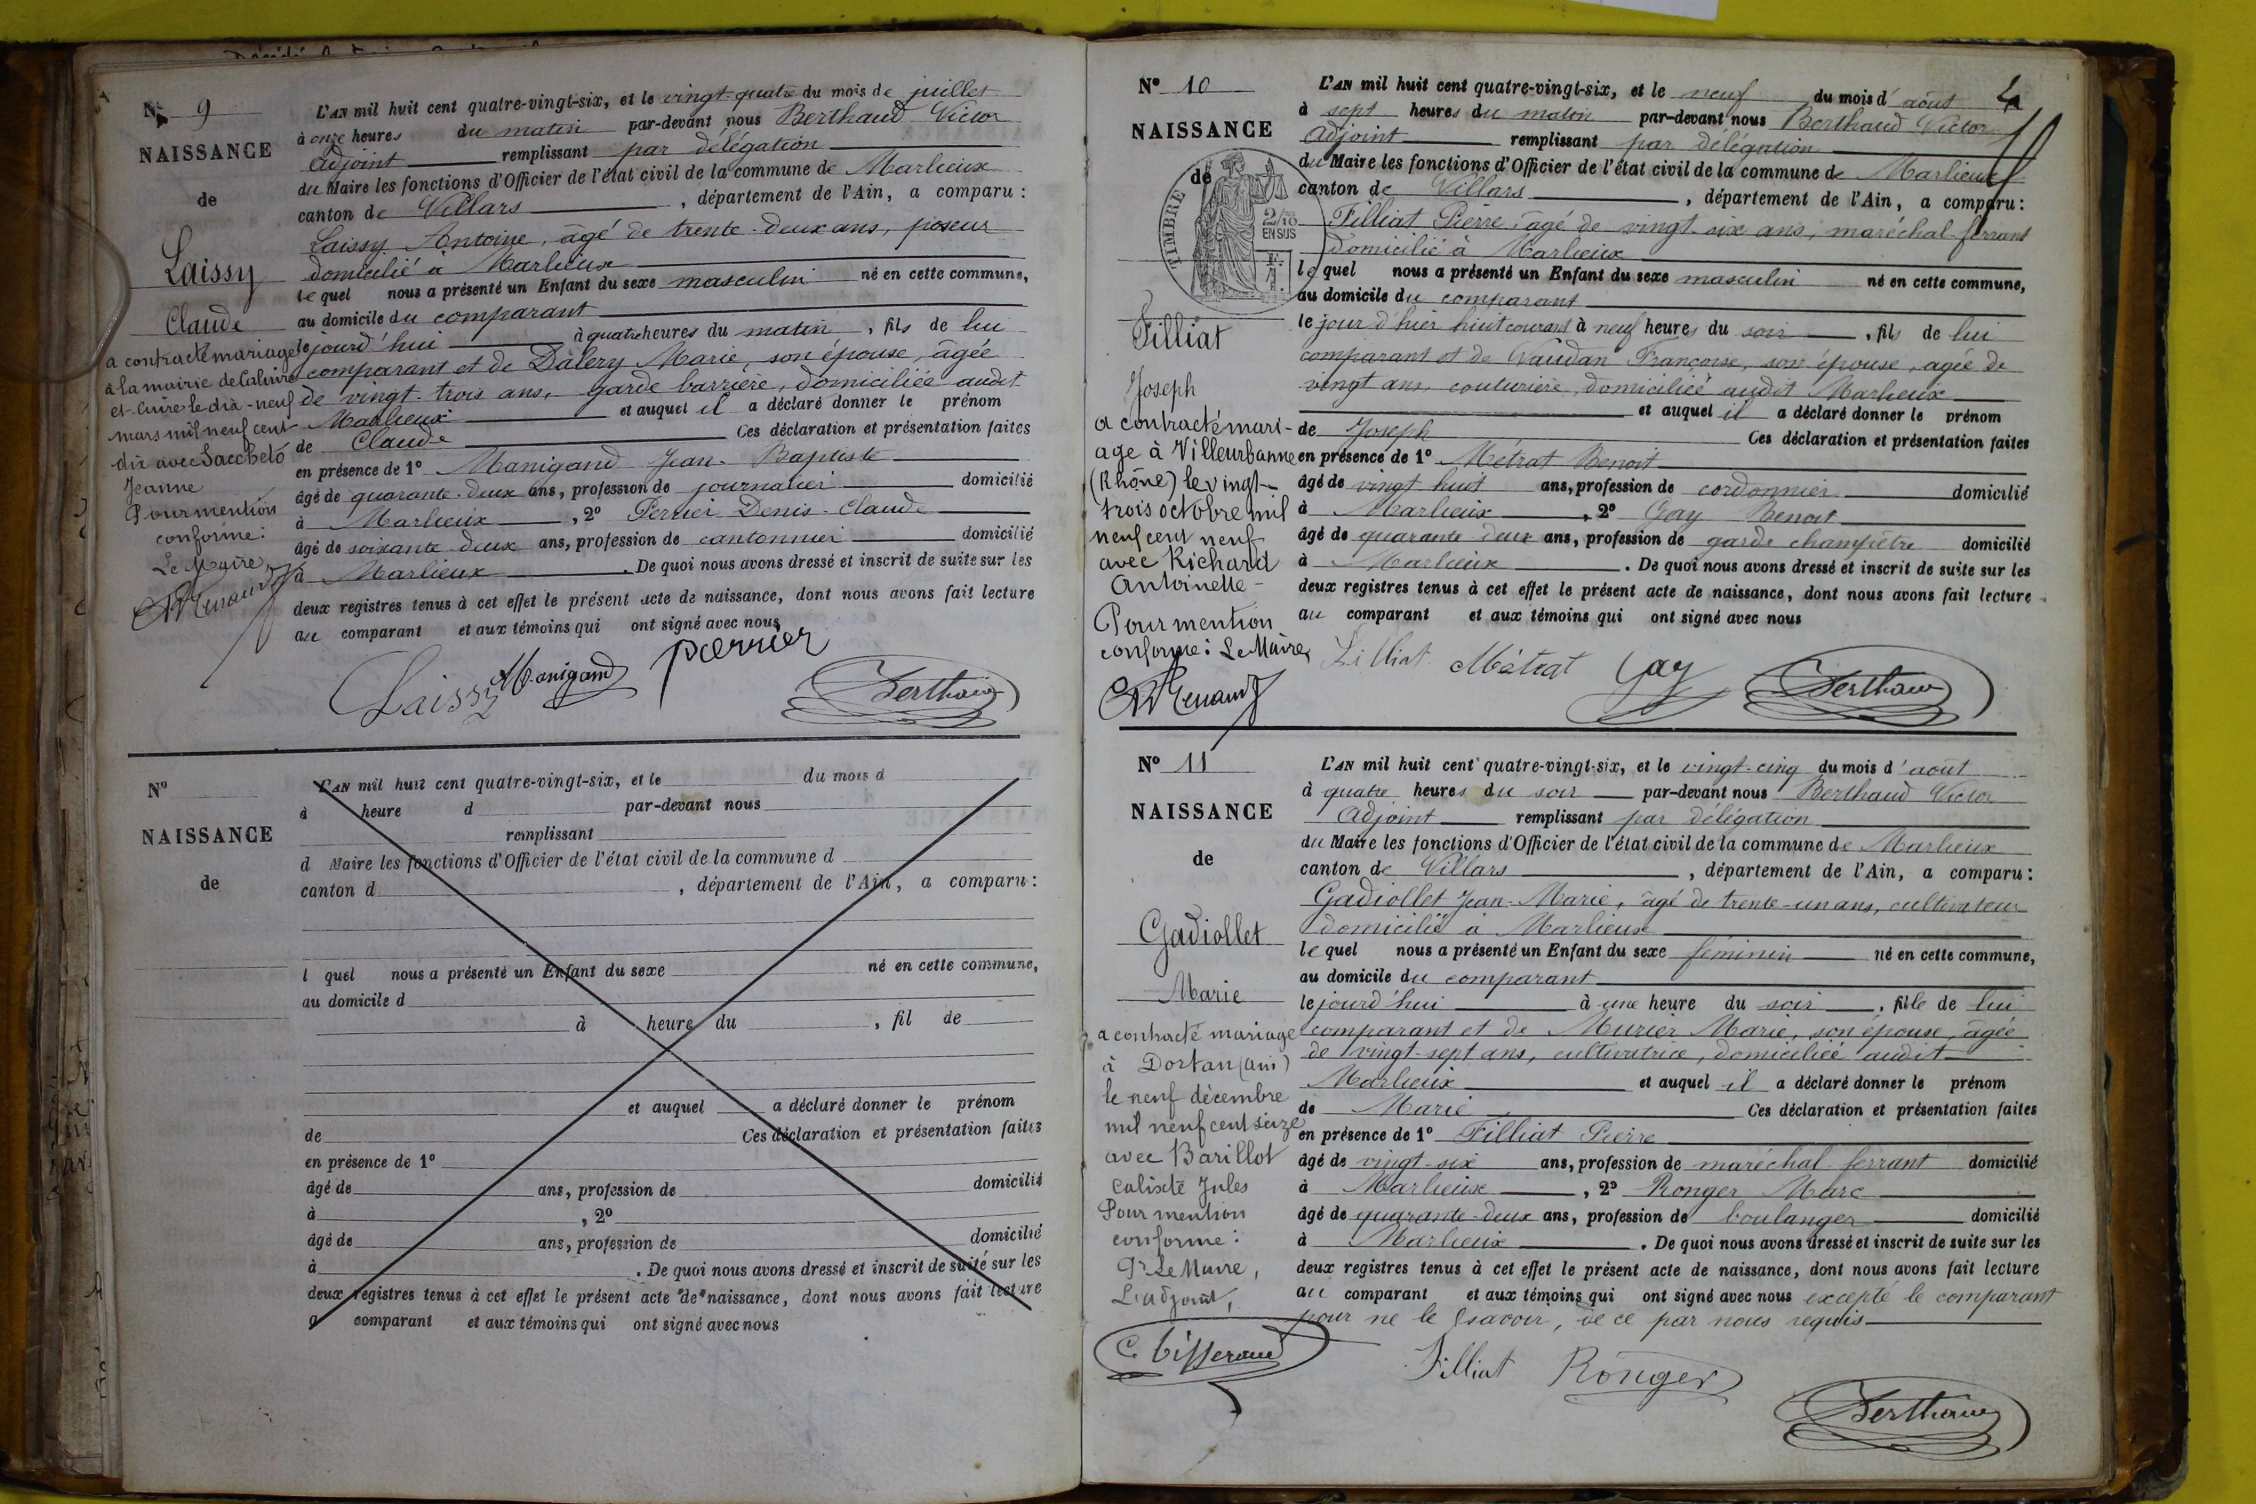 Nº 9
NAISSANCE
de
Laissy
Claude
a contracté mariage
à la mairie de Caluire
et-Cuire le dix-neuf
mars mil neuf cent
dix avec Sacchéto
Jeanne
Pour mention
conforme:
Le Maire,
L'AN mil huit cent quatre-vingt-six, et le vingt-quatre du mois de juillet
à onze heures du matin par-devant nous Berthaud Victor
adjoint remplissant par délégation
du Maire les fonctions d'Officier de l'état civil de la commune de Marlieux
canton de Villars, département de l'Ain, a comparu:
Laissy Antoine, âgé de trente-deux ans, poseur
domicilié à Marlieux
lequel nous a présenté un Enfant du sexe masculin né en cette commune,
au domicile du comparant
le jourd'hui à quatre heures du matin, fils de lui
comparant et de Daléry Marie, son épouse, âgée
de vingt-trois ans, garde barrière, domiciliée audit
Marlieux et auquel il a déclaré donner le prénom
de Claude Ces déclaration et présentation faites
en présence de 1º Manigand Jean-Baptiste
âgé de quarante-deux ans, profession de journalier domicilié
à Marlieux, 2º Perrier Denis-Claude
âgé de soixante-deux ans, profession de cantonnier domicilié
à Marlieux. De quoi nous avons dressé et inscrit de suite sur les
deux registres tenus à cet effet le présent acte de naissance, dont nous avons fait lecture
au comparant et aux témoins qui ont signé avec nous
Laissy Manigand perrier Berthaud
Nº
NAISSANCE
de
L'AN mil huit cent quatre-vingt-six, et le du mois d
à heure d par-devant nous
remplissant
d Maire les fonctions d'Officier de l'état civil de la commune d
canton d , département de l'Ain, a comparu:
l quel nous a présenté un Enfant du sexe né en cette commune,
au domicile d
à heure du , fil de
et auquel a déclaré donner le prénom
de Ces déclaration et présentation faites
en présence de 1º
âgé de ans, profession de domicilié
à , 2º
âgé de ans, profession de domicilié
à . De quoi nous avons dressé et inscrit de suite sur les
deux registres tenus à cet effet le présent acte de naissance, dont nous avons fait lecture
a comparant et aux témoins qui ont signé avec nous
Nº 10
NAISSANCE
de
TIMBRE
2/10
EN SUS
Filliat
Joseph
a contracté mari-
age à Villeurbanne
(Rhône) le vingt-
trois octobre mil
neuf cent neuf
avec Richard
Antoinette-
Pour mention
conforme: Le Maire,
L'AN mil huit cent quatre-vingt-six, et le neuf du mois d'août
à sept heures du matin par-devant nous Berthaud Victor
adjoint remplissant par délégation
du Maire les fonctions d'Officier de l'état civil de la commune de Marlieux
canton de Villars, département de l'Ain, a comparu:
Filliat Pierre, âgé de vingt-six ans, maréchal-ferrant
domicilié à Marlieux
lequel nous a présenté un Enfant du sexe masculin né en cette commune,
au domicile du comparant
le jour d'hier huit courant à neuf heures du soir, fils de lui
comparant et de Vaudan Françoise, son épouse, agée de
vingt ans, couturière, domiciliée audit Marlieux
et auquel il a déclaré donner le prénom
de Joseph Ces déclaration et présentation faites
en présence de 1º Métrat Benoit
âgé de vingt-huit ans, profession de cordonnier domicilié
à Marlieux, 2º Gay Benoit
âgé de quarante-deux ans, profession de garde champêtre domicilié
à Marlieux. De quoi nous avons dressé et inscrit de suite sur les
deux registres tenus à cet effet le présent acte de naissance, dont nous avons fait lecture
au comparant et aux témoins qui ont signé avec nous
Filliat Métrat Gay Berthaud
Nº 11
NAISSANCE
de
Gadiollet
Marie
a contracté mariage
à Dortan (Ain)
le neuf décembre
mil neuf cent seize
avec Barillot
Calixte Jules
Pour mention
conforme:
Pr Le Maire,
L'adjoint,
C. Tisserand
L'AN mil huit cent quatre-vingt-six, et le vingt-cinq du mois d'août
à quatre heures du soir par-devant nous Berthaud Victor
adjoint remplissant par délégation
du Maire les fonctions d'Officier de l'état civil de la commune de Marlieux
canton de Villars, département de l'Ain, a comparu:
Gadiollet Jean-Marie, âgé de trente-un ans, cultivateur
domicilié à Marlieux
lequel nous a présenté un Enfant du sexe féminin né en cette commune,
au domicile du comparant
le jourd'hui à une heure du soir, fille de lui
comparant et de Murier Marie, son épouse, âgée
de vingt-sept ans, cultivatrice, domiciliée audit
Marlieux et auquel il a déclaré donner le prénom
de Marie Ces déclaration et présentation faites
en présence de 1º Filliat Pierre
âgé de vingt-six ans, profession de maréchal-ferrant domicilié
à Marlieux, 2º Ronger Marc
âgé de quarante-deux ans, profession de boulanger domicilié
à Marlieux. De quoi nous avons dressé et inscrit de suite sur les
deux registres tenus à cet effet le présent acte de naissance, dont nous avons fait lecture
au comparant et aux témoins qui ont signé avec nous excepté le comparant
pour ne le savoir, de ce par nous requis
Filliat Ronger Berthaud